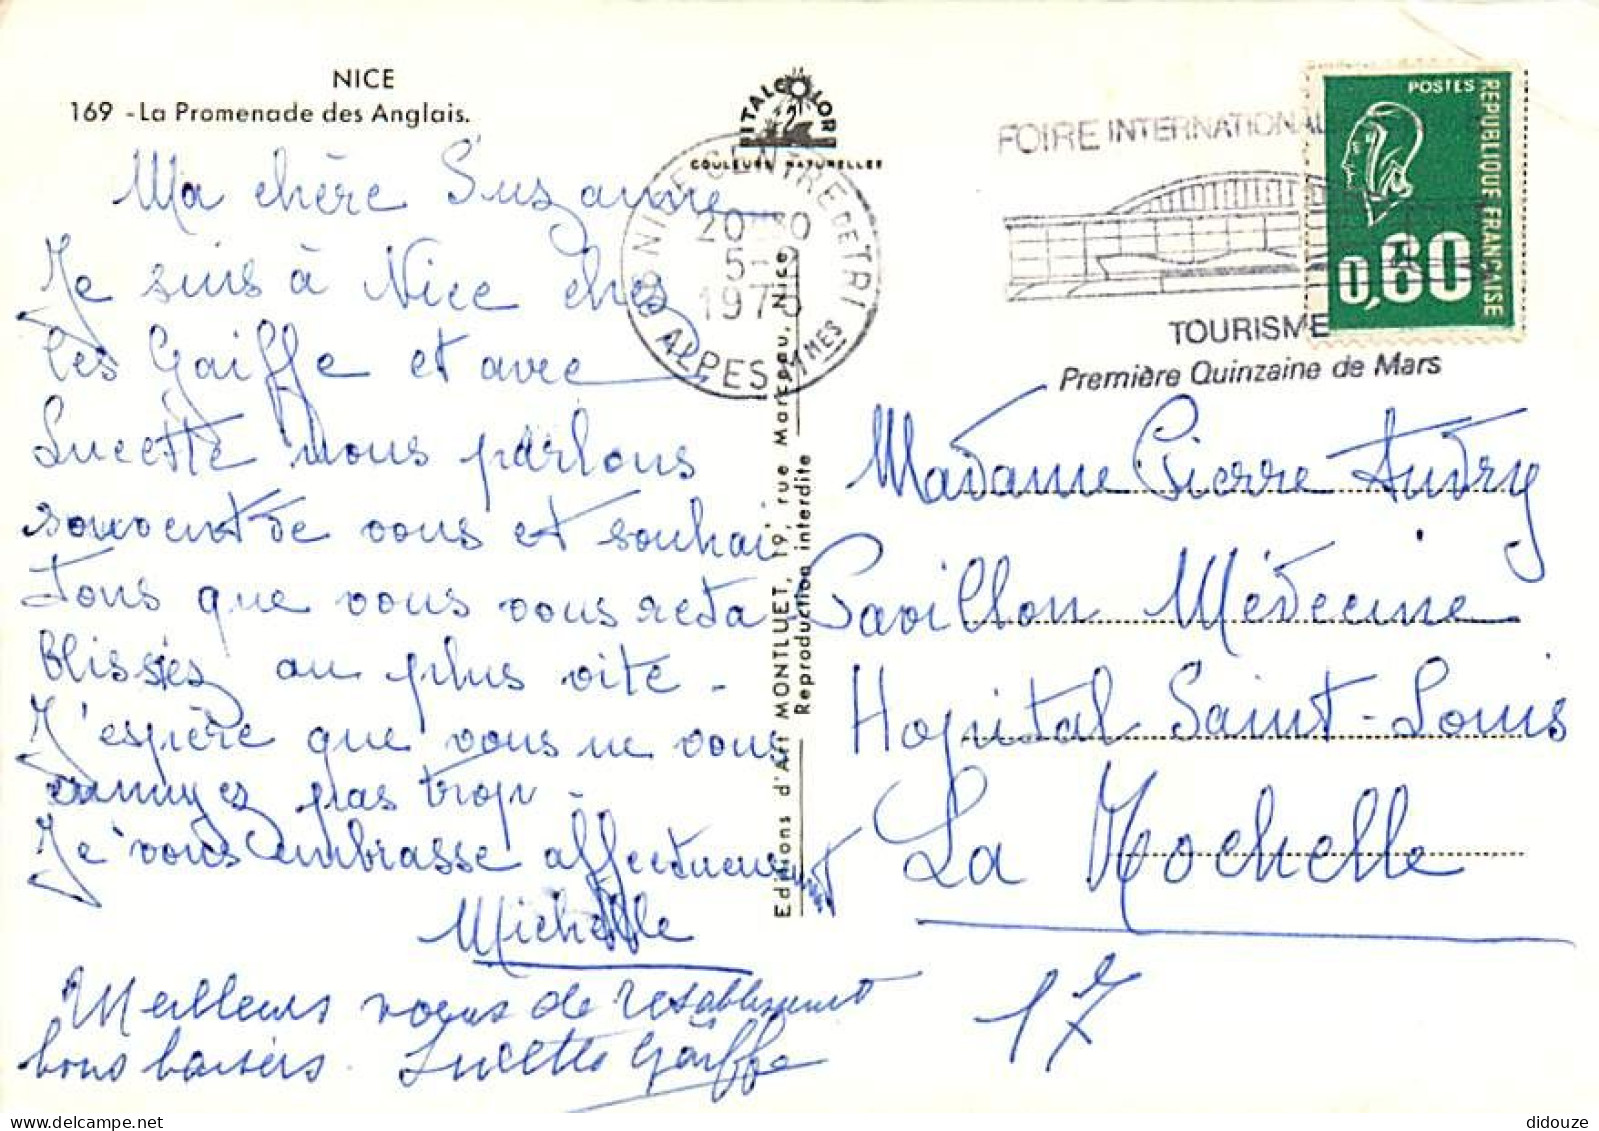 NICE
169 - La Promenade des Anglais.
Ma chère Suzanne
Je suis à Nice chez
les Gaiffe et avec
Lucette nous parlons
souvent de vous et souhai
tons que vous vous réta
blissiez au plus vite.
J'espère que vous ne vous
ennuyez pas trop.
Je vous embrasse affectueusement
Michelle
Meilleurs voeux de rétablissement
bons baisers. Lucette Gaiffe
ITALCOLOR
COULEURS NATURELLES
06 NICE CENTRE DE TRI
5-
197
ALPES Mmes
Editions d'Art MONTLUET, 19, rue Marceau, Nice
Reproduction interdite
FOIRE INTERNATIONAL
TOURISME
Première Quinzaine de Mars
POSTES
REPUBLIQUE FRANÇAISE
0,60
Madame Pierre Audry
Pavillon Médecine
Hopital Saint-Louis
La Rochelle
17
didouze